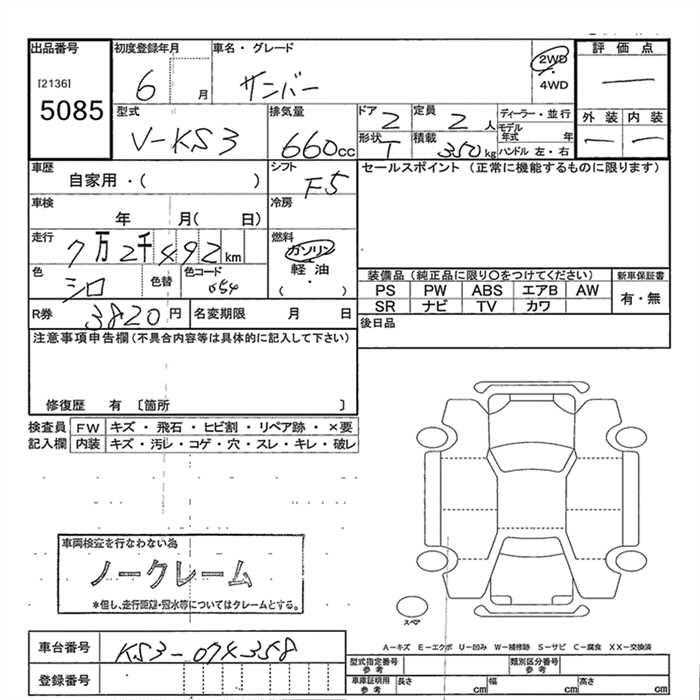 出品番号
[2136]
5085
初度登録年月
6 月
車名・グレード
サンバー
2WD
・
4WD
評価点
—
外装 内装
— —
型式
V-KS3
排気量
660cc
ドア 2
定員 2 人
形状 T
積載 350kg
ディーラー・並行
モデル年式 年
ハンドル 左・右
車歴
自家用・( )
シフト
F5
セールスポイント (正常に機能するものに限ります)
車検
年 月( 日)
冷房
走行
7万2千492km
燃料
ガソリン
・
軽油
・
( )
色
シロ
色替
色コード
054
装備品 (純正品に限り○をつけてください)
新車保証書
PS PW ABS エアB AW
有・無
SR ナビ TV カワ
R券 3820 円
名変期限 月 日
後日品
注意事項申告欄(不具合内容等は具体的に記入して下さい)
修復歴 有 〔箇所 〕
検査員記入欄
FW キズ・飛石・ヒビ割・リペア跡・×要
内装 キズ・汚レ・コゲ・穴・スレ・キレ・破レ
車両検査を行なわない為
ノークレーム
*但し、走行距離・冠水等についてはクレームとする。
スペア
A-キズ E-エクボ U-凹み W-補修跡 S-サビ C-腐食 XX-交換済
車台番号 KS3-074358
登録番号
型式指定番号参考
類別区分番号参考
車庫証明用参考 長さ cm 幅 cm 高さ cm